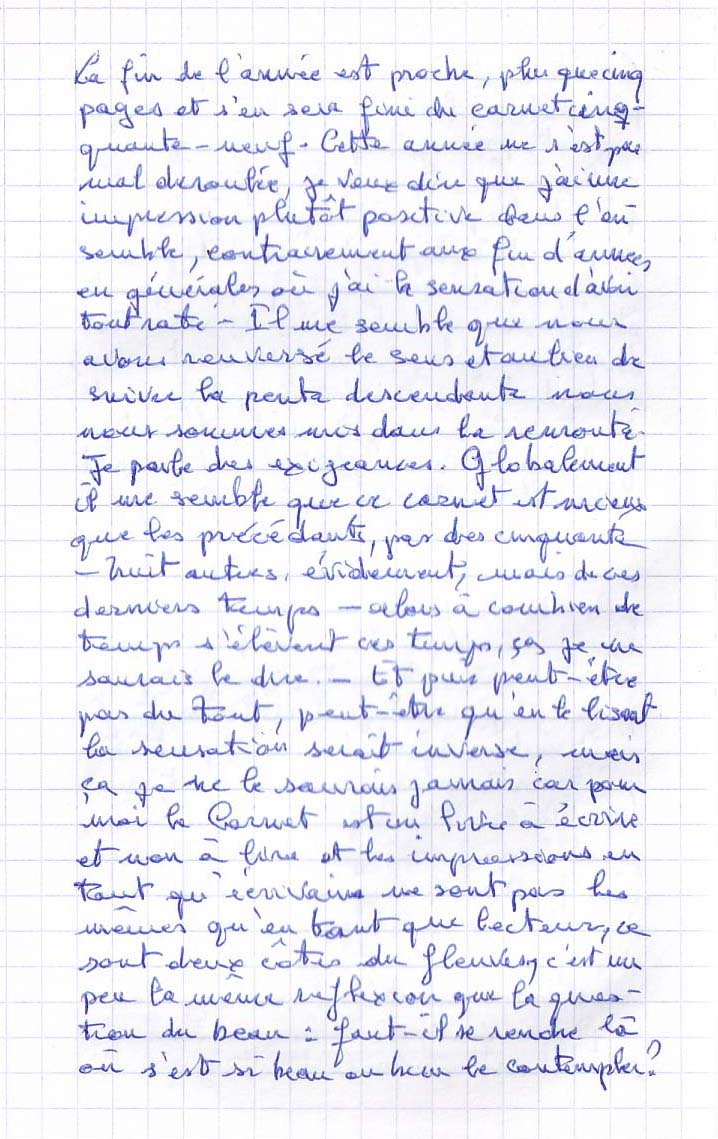 La fin de l'année est proche, plus que cinq
pages et s'en sera fini du carnet cinq-
quante-neuf. Cette année ne s'est pas
mal déroulée, je veux dire que j'ai une
impression plutôt positive dans l'en
semble, contrairement aux fin d'années
en générales où j'ai la sensation d'avoir
tout raté - Il me semble que nous
avons renversé le sens et au lieu de
suivre la pente descendante nous
nous sommes mis dans la remonté.
Je parle des exigeances. Globalement
il me semble que ce carnet est mieux
que les précédants, pas des cinquante
- huit autres, évidement, mais de ces
derniers temps - alors à combien de
temps s'élèvent ces temps, ça je ne
saurais le dire. - Et puis peut-être
pas du tout, peut-être qu'en le lisant
la sensation serait inverse, mais
ça je ne le saurais jamais car pour
moi le Carnet est un livre à écrire
et non à lire et les impressions en
tant qu'écrivain ne sont pas les
mêmes qu'en tant que lecteur, ce
sont deux côtés du fleuve, c'est un
peu la même réflexion que la ques-
tion du beau : faut-il se rendre là
où s'est si beau ou bien le contempler ?